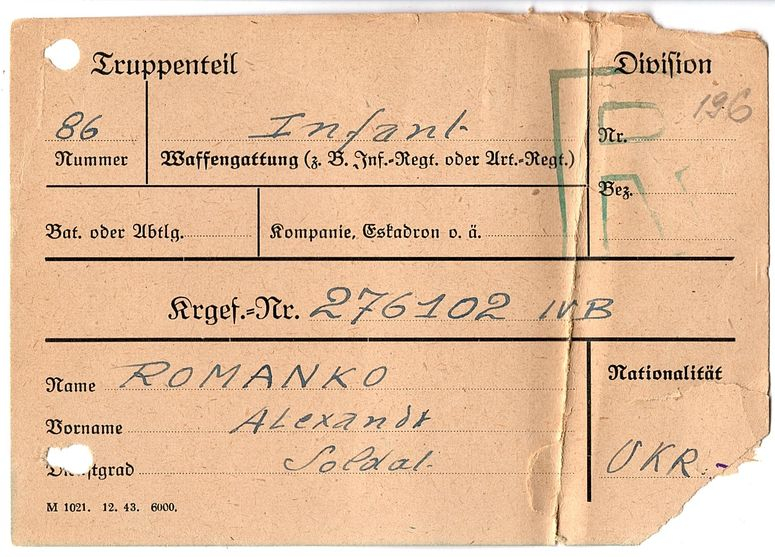 Truppenteil Division
196
86 Infant. Nr.
Nummer Waffengattung (z. B. Inf.-Regt. oder Art.-Regt.)
Bez.
Bat. oder Abtlg. Kompanie, Eskadron o. ä.
Krgef.-Nr. 276102 IVB
Name ROMANKO Nationalität
Vorname Alexandr
Dienstgrad Soldat. UKR.-
M 1021. 12. 43. 6000.